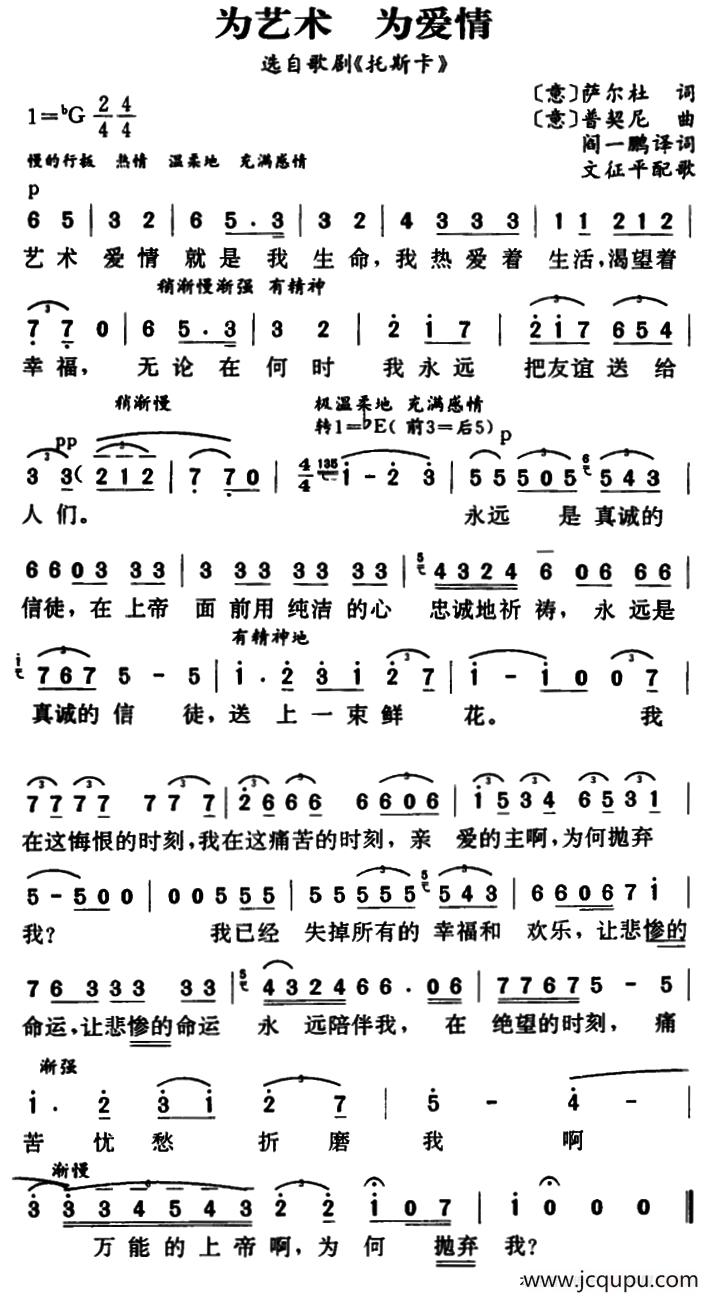 为艺术 为爱情
选自歌剧《托斯卡》
〔意〕萨尔杜 词
1=♭G 2/4 4/4
〔意〕普契尼 曲
阎一鹏译词
文征平配歌
慢的行板 热情 温柔地 充满感情
p
6 5 | 3 2 | 6 5 . 3 | 3 2 | 4 3 3 3 | 1 1 2 1 2 |
艺 术 爱 情 就 是 我 生 命，我 热 爱 着 生 活，渴望着
稍渐慢渐强 有精神
7 7 0 | 6 5 . 3 | 3 2 | 2 1 7 | 2 1 7 6 5 4 |
幸 福， 无 论 在 何 时 我 永 远 把友谊 送 给
稍渐慢 极温柔地 充满感情
转1=♭E(前3=后5) p
pp
3 3 ( 2 1 2 | 7 7 0 ) 4/4 135 1 - 2 3 | 5 5 5 0 5 6 5 4 3 |
人 们。 永远 是 真诚的
6 6 0 3 3 3 | 3 3 3 3 3 3 3 | 5 4 3 2 4 6 0 6 6 6 |
信徒，在 上帝 面 前用 纯洁 的心 忠诚地祈 祷，永 远是
有精神地
1 7 6 7 5 - 5 | 1 . 2 3 1 2 7 | 1 - 1 0 0 7 |
真诚的 信 徒，送 上 一 束 鲜 花。 我
7 7 7 7 7 7 7 | 2 6 6 6 6 6 0 6 | 1 5 3 4 6 5 3 1 |
在这悔恨的时刻，我在这痛苦的时刻，亲 爱的主啊，为何抛弃
5 - 5 0 0 | 0 0 5 5 5 | 5 5 5 5 5 5 5 4 3 | 6 6 0 6 7 1 |
我？ 我已经 失掉所有的 幸福和 欢乐，让悲惨的
7 6 3 3 3 3 3 | 5 4 3 2 4 6 6 . 0 6 | 7 7 6 7 5 - 5 |
命运，让悲惨的命运 永 远陪伴我， 在 绝望的时刻， 痛
渐强
1 . 2 3 1 | 2 7 | 5 - 4 - |
苦 忧 愁 折 磨 我 啊
渐慢
3 3 3 4 5 4 3 2 2 1 0 7 | 1 0 0 0 ‖
万 能 的 上 帝 啊，为 何 抛弃 我？
www.jcqupu.com